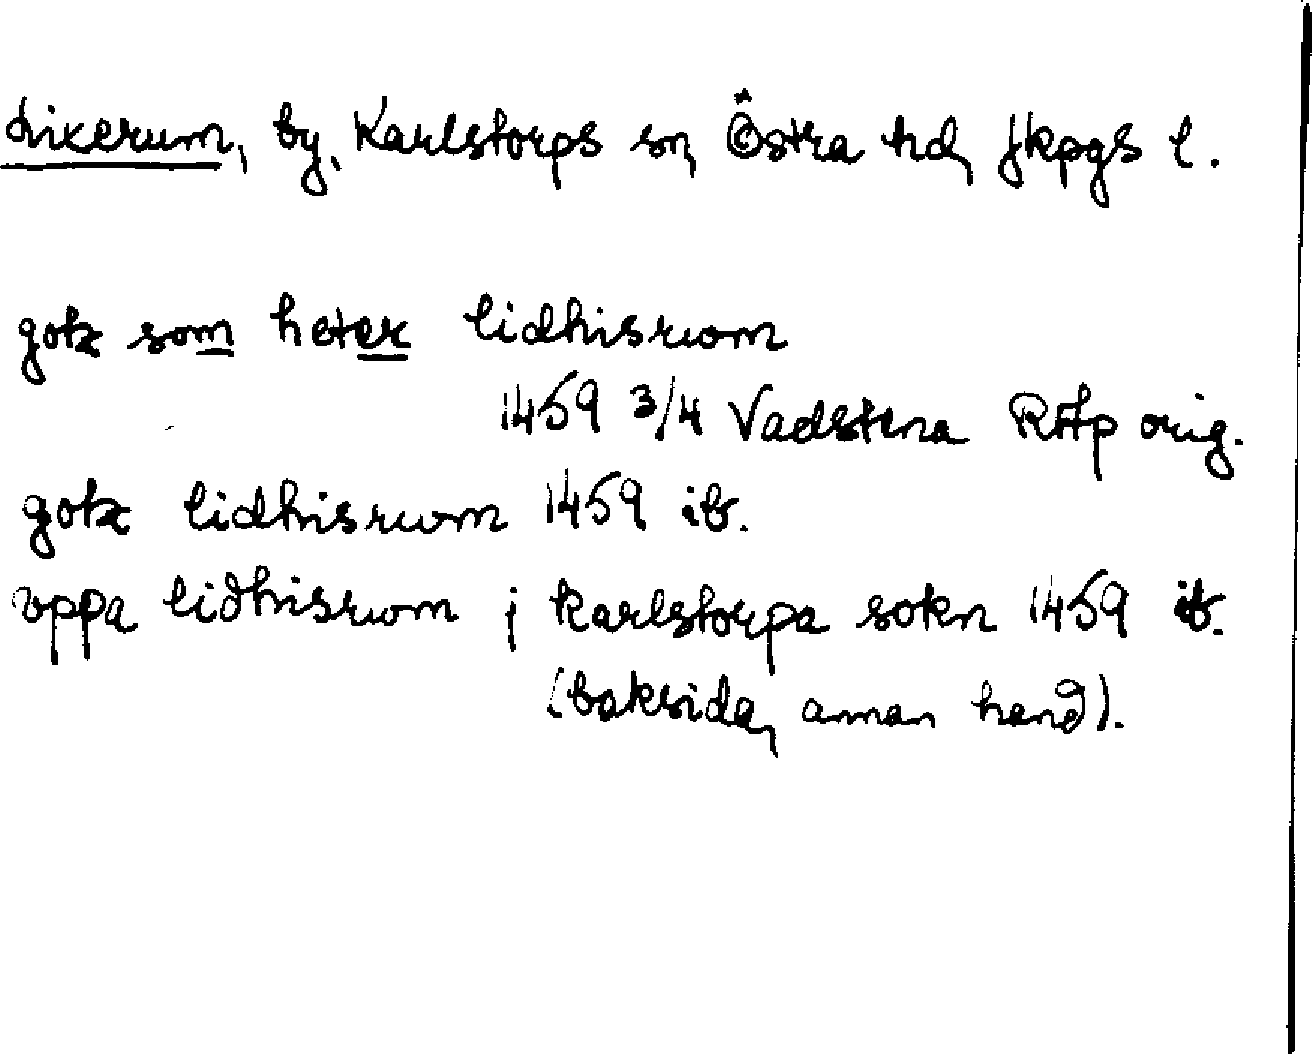 Lixerum, by, Karlstorps sn, Östra hd, Jkpgs l.
gotz som heter lidhisrwom
1459 3/4 Vadstena RAp orig.
gotz lidhisrwm 1459 ib.
vppa lidhisrwom j karlstorpa sokn 1459 ib.
(baksida, annan hand).